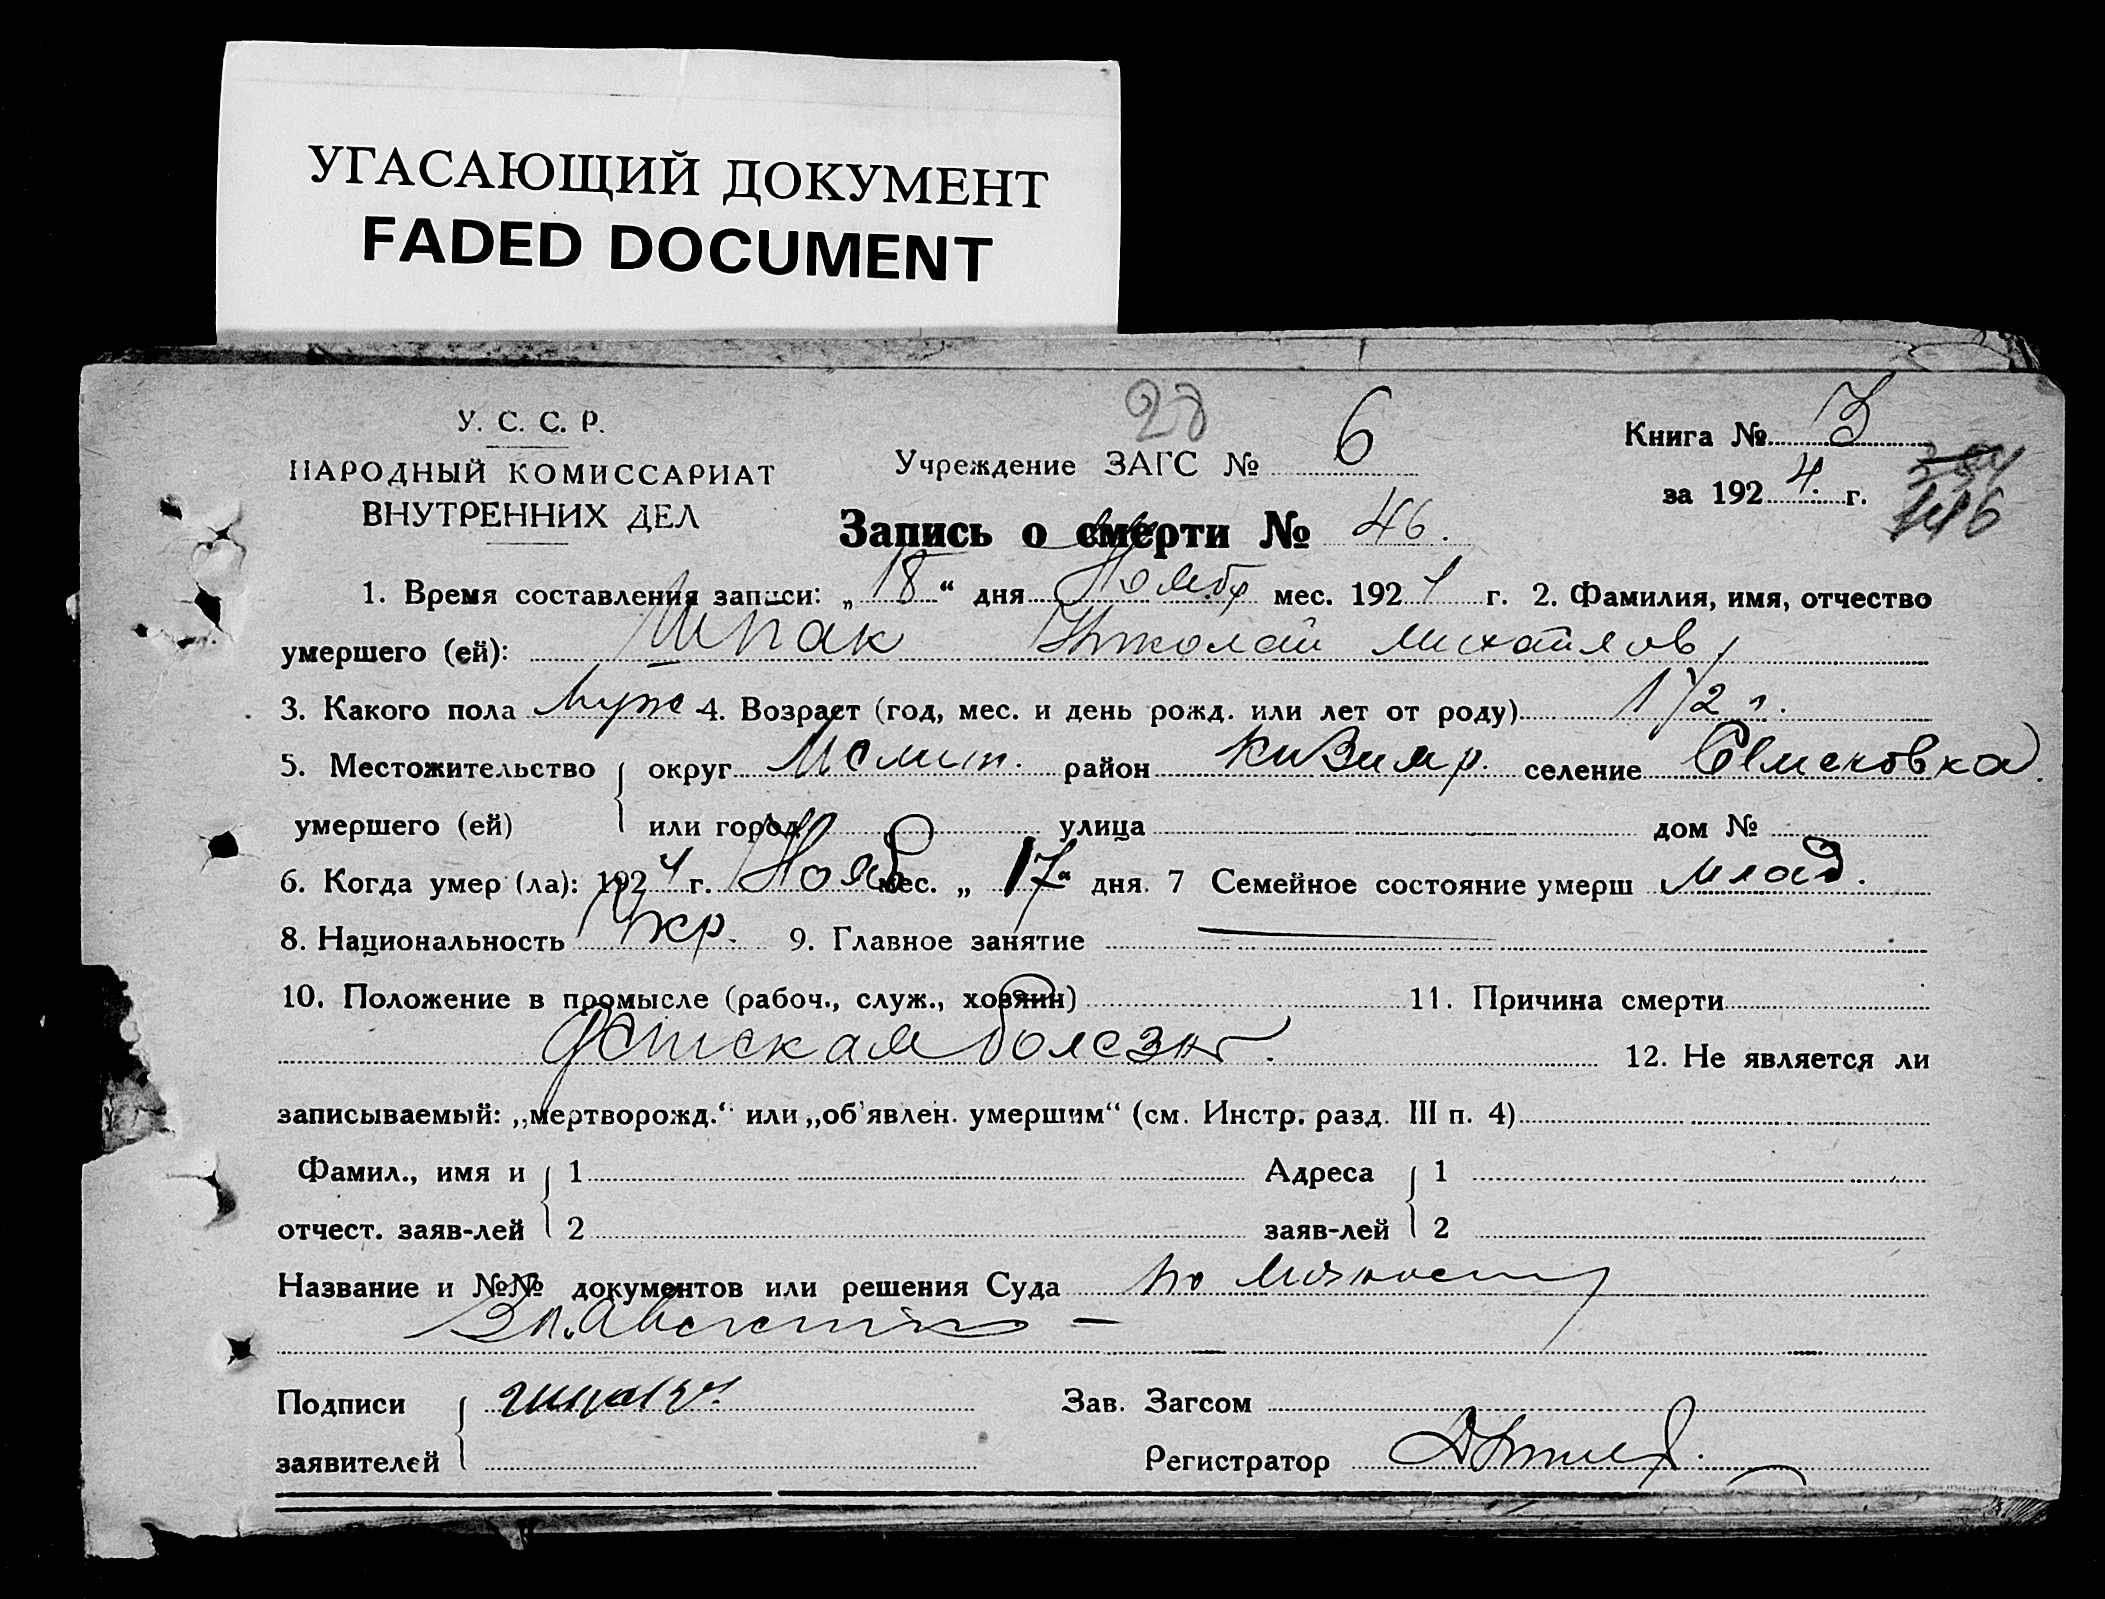 УГАСАЮЩИЙ ДОКУМЕНТ
FADED DOCUMENT
У. С. С. Р.
НАРОДНЫЙ КОМИССАРИАТ
ВНУТРЕННИХ ДЕЛ
28
Учреждение ЗАГС № 6
Книга № 3
за 1924 г.
446
Запись о смерти № 46.
1. Время составления записи: „18“ дня Ноября мес. 1924 г. 2. Фамилия, имя, отчество
умершего (ей): Шпак Николай Михайлов
3. Какого пола муж 4. Возраст (год, мес. и день рожд. или лет от роду) 1 1/2 г.
5. Местожительство округ район селение
умершего (ей) или город улица дом №
6. Когда умер (ла): 1924 г. Нояб мес. „17“ дня. 7 Семейное состояние умерш млад.
8. Национальность Укр. 9. Главное занятие —
10. Положение в промысле (рабоч., служ., хозяин) 11. Причина смерти
Детская болезнь.
12. Не является ли
записываемый: „мертворожд.“ или „об'явлен. умершим“ (см. Инстр. разд. III п. 4)
Фамил., имя и 1 Адреса 1
отчест. заяв-лей 2 заяв-лей 2
Название и №№ документов или решения Суда по личности
Подписи Зав. Загсом
заявителей Регистратор